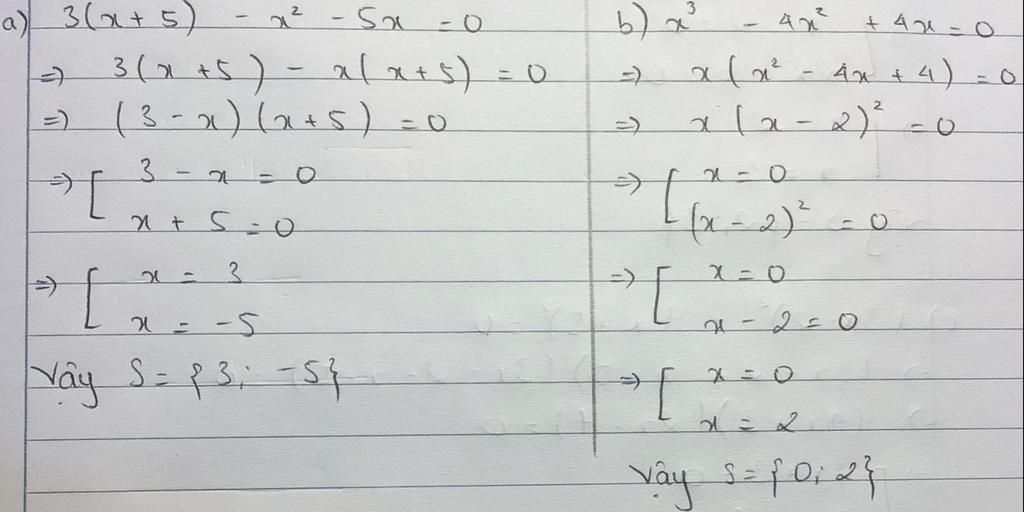 a) 3(x + 5) - x² - 5x = 0
=> 3(x + 5) - x(x + 5) = 0
=> (3 - x)(x + 5) = 0
=> [ 3 - x = 0
x + 5 = 0
=> [ x = 3
x = -5
Vậy S = {3; -5}
b) x³ - 4x² + 4x = 0
=> x(x² - 4x + 4) = 0
=> x(x - 2)² = 0
=> [ x = 0
(x - 2)² = 0
=> [ x = 0
x - 2 = 0
=> [ x = 0
x = 2
Vậy S = {0; 2}